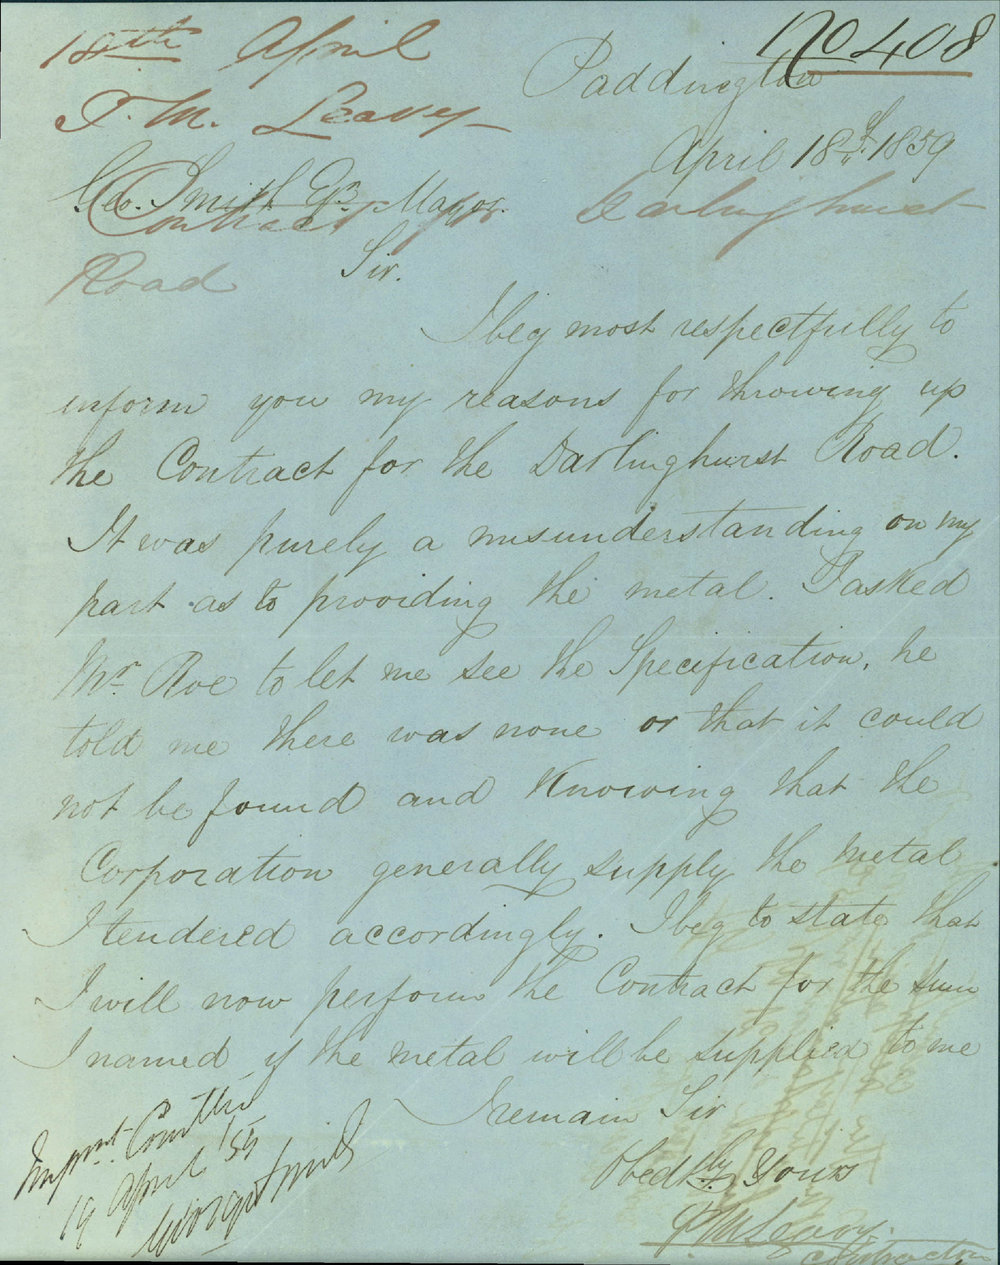 No 408
18th April
T. M. Leavey
Contract for Darlinghurst
Road
Paddington
April 18th. 1859
Geo. Smith Esqr. Mayor.
Sir.
I beg most respectfully to
inform you my reasons for throwing up
the Contract for the Darlinghurst Road.
It was purely a misunderstanding on my
part as to providing the metal. I asked
Mr. Roe to let me see the Specification, he
told me there was none or that it could
not be found and Knowing that the
Corporation generally supply the metal
I tendered accordingly. I beg to state that
I will now perform the Contract for the sum
I named if the metal will be supplied to me
I remain Sir
Obedtly Yours
McLeavy.
Contractor
Impmt. Comttee
19 April /59
George Smith